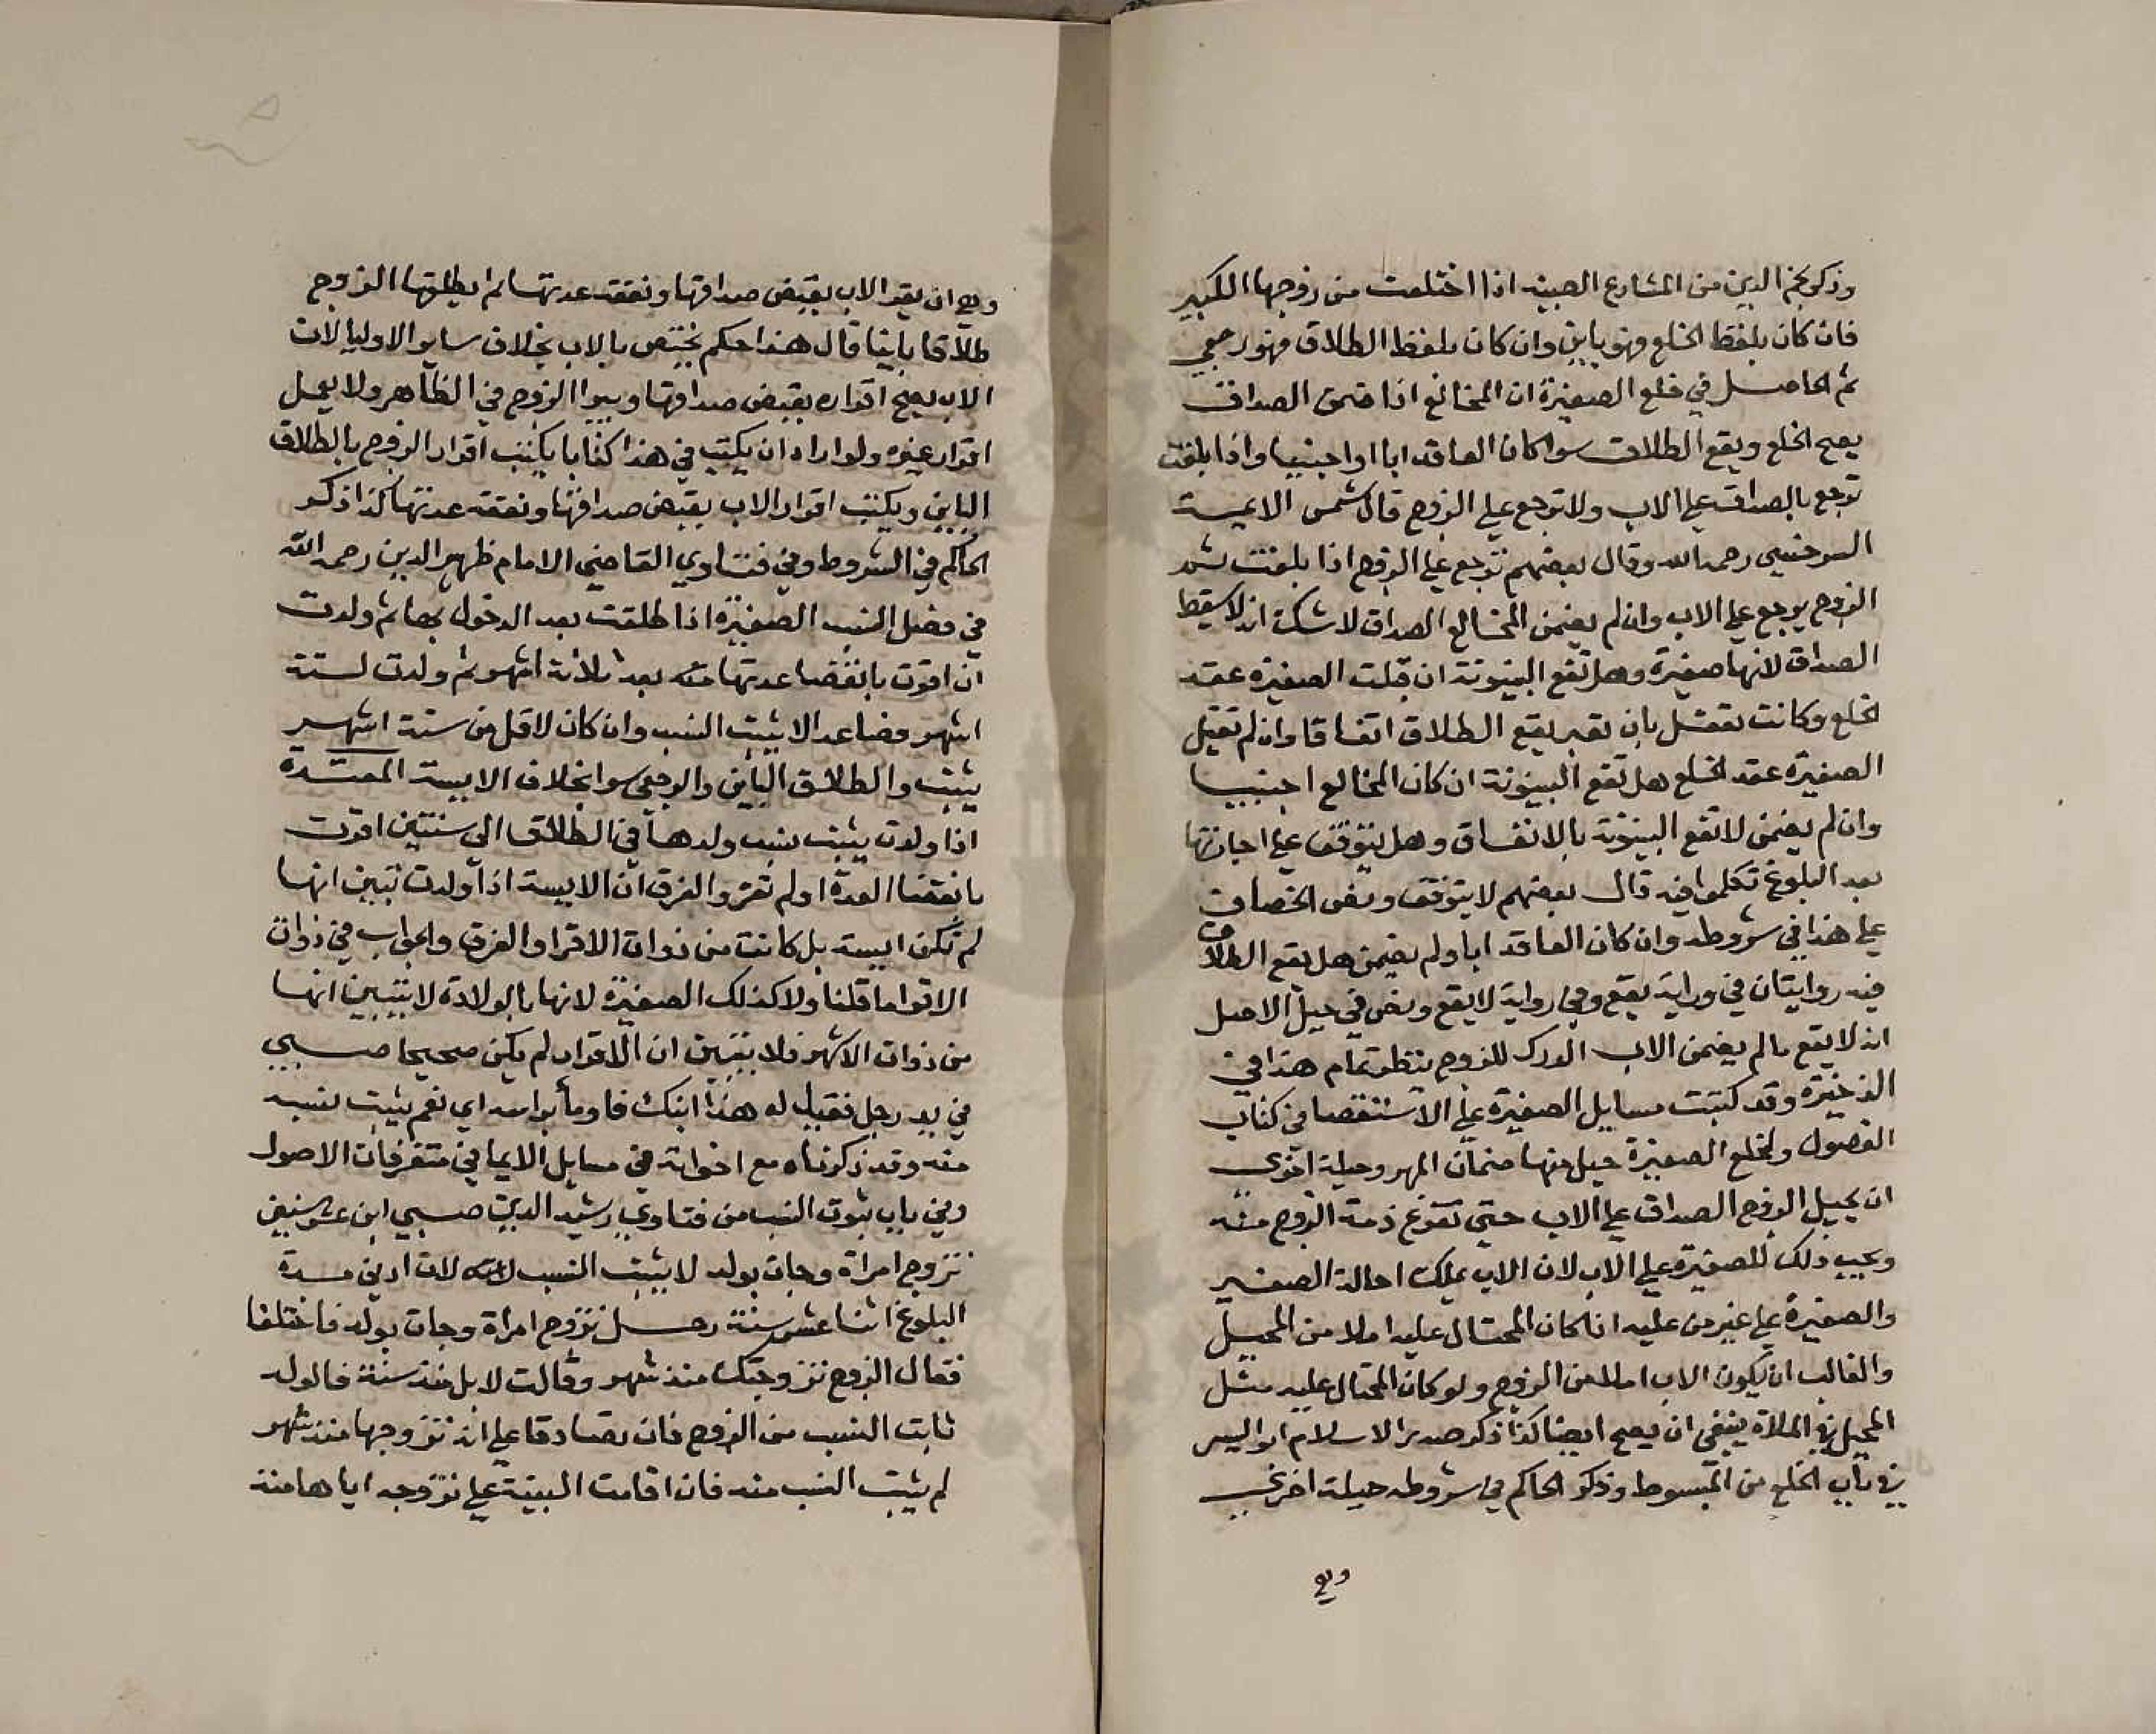 وذكر نجم الدين من المشارع الصبية اذا اختلعت من زوجها الكبير
فان كان بلفظ الخلع فهو باين وان كان بلفظ الطلاق فهو رجعي
ثم الحاصل في خلع الصغيرة ان المخالع اذا ضمن الصداق
يصح الخلع ويقع الطلاق سوا كان العاقد ابا او اجنبيا واذا بلغت
ترجع بالصداق على الاب ولا ترجع على الزوج قال شمس الايمة
السرخسي رحمه الله وقال بعضهم ترجع على الزوج اذا بلغت ثم
الزوج يرجع على الاب وان لم يضمن المخالع الصداق لا شك انه لا يسقط
الصداق لانها صغيرة وهل تقع البينونة ان قبلت الصغيرة عقد
الخلع وكانت تعقل بان تعبر يقع الطلاق اتفاقا وان لم تقبل
الصغيرة عقد الخلع هل تقع البينونة ان كان المخالع اجنبيا
وان لم يضمن لا تقع البينونة بالاتفاق وهل يتوقف على اجازتها
بعد البلوغ تكلموا فيه قال بعضهم لا يتوقف ونص الخصاف
على هذا في شروطه وان كان العاقد ابا ولم يضمن هل يقع الطلاق
فيه روايتان في وراية يقع وفي رواية لا يقع ونص في حيل الاصل
انه لا يقع ما لم يضمن الاب الدرك للزوج ينظر تمام هذا في
الذخيرة وقد كتبت مسايل الصغيرة على الاستقصا في كتاب
الفصول ولخلع الصغيرة حيل منها ضمان المهر وحيلة اخرى
ان يحيل الزوج الصداق على الاب حتى تفرغ ذمة الزوج منه
ويجب ذلك للصغيرة على الاب لان الاب يملك احالة الصغير
والصغيرة على غير من عليه اذا كان المحتال عليه املا من المحيل
والغالب ان يكون الاب املا من الزوج ولو كان المحتال عليه مثل
المحيل في الملاة ينبغي ان يصح ايضا كذا ذكر صدر الاسلام ابو اليسر
في باب الخلع من المبسوط وذكر الحاكم في شروطه حيلة اخرى
وهي
وهي ان يقر الاب بقبض صداقها ونفقة عدتها ثم يطلقها الزوج
طلاقا باينا قال هذا حكم يختص بالاب بخلاف ساير الاوليا لان
الاب يصح اقراره بقبض صداقها ويبرا الزوج في الظاهر ولا يعمل
اقرار غيره ولو اراد ان يكتب في هذا كتابا يكتب اقرار الزوج بالطلاق
الباين ويكتب اقرار الاب بقبض صداقها ونفقة عدتها كذا ذكر
الحاكم في الشروط وفي فتاوي القاضي الامام ظهير الدين رحمه الله
في فصل النسب الصغيرة اذا طلقت بعد الدخول بها ثم ولدت
ان اقرت بانقضا عدتها منه بعد ثلاثة اشهر ثم ولدت لستة
اشهر فصاعدا لا يثبت النسب وان كان لاقل من ستة اشهر
يثبت والطلاق الباين والرجعي سوا بخلاف الايسة المعتدة
اذا ولدت يثبت نسب ولدها في الطلاق الى سنتين اقرت
بانقضا العدة او لم تقر والفرق ان الايسة اذا ولدت تبين انها
لم تكن ايسة بل كانت من ذوات الاقرا والفرق والجواب في ذوات
الاقرا ما قلنا ولا كذلك الصغيرة لانها بالولادة لا يتبين انها
من ذوات الاشهر فلا يتبين ان الاقرار لم يكن صحيحا صبي
في يد رجل فقيل له هذا ابنك فاومأ براسه اي نعم يثبت نسبه
منه وقد ذكرناه مع اخواته في مسايل الايما في متفرقات الاصول
وفي باب ثبوت النسب من فتاوي رشيد الدين صبي ابن عشر سنين
تزوج امراة وجات بولد لا يثبت النسب لان ادنى مدة
البلوغ اثنا عشر سنة رجل تزوج امراة وجات بولد فاختلفا
فقال الزوج تزوجتك منذ شهر وقالت لا بل منذ سنة فالولد
ثابت النسب من الزوج فان تصادقا على انه تزوجها منذ شهر
لم يثبت النسب منه فان اقامت البينة على تزوجه اياها منذ